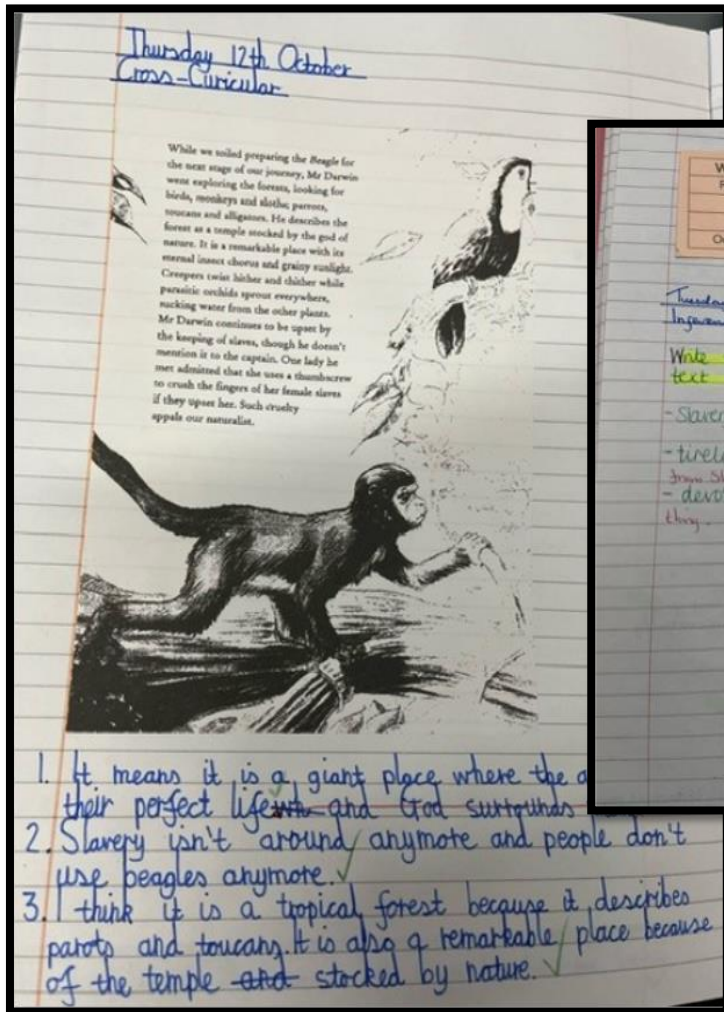 Thursday 12th October
Cross-Curicular
While we toiled preparing the Beagle for
the next stage of our journey, Mr Darwin
went exploring the forests, looking for
birds, monkeys and sloths; parrots,
toucans and alligators. He describes the
forest as a temple stocked by the god of
nature. It is a remarkable place with its
eternal insect chorus and grainy sunlight.
Creepers twist hither and thither while
parasitic orchids sprout everywhere,
sucking water from the other plants.
Mr Darwin continues to be upset by
the keeping of slaves, though he doesn't
mention it to the captain. One lady he
met admitted that she uses a thumbscrew
to crush the fingers of her female slaves
if they upset her. Such cruelty
appals our naturalist.
1. It means it is a giant place where the
their perfect life and God surrounds
2. Slavery isn't around anymore and people don't
use beagles anymore.
3. I think it is a tropical forest because it describes
parots and toucans. It is also a remarkable place because
of the temple and stocked by nature.
Tuesday
Write
text
- Slaver
- tirel
from Sl
- devo
thing.